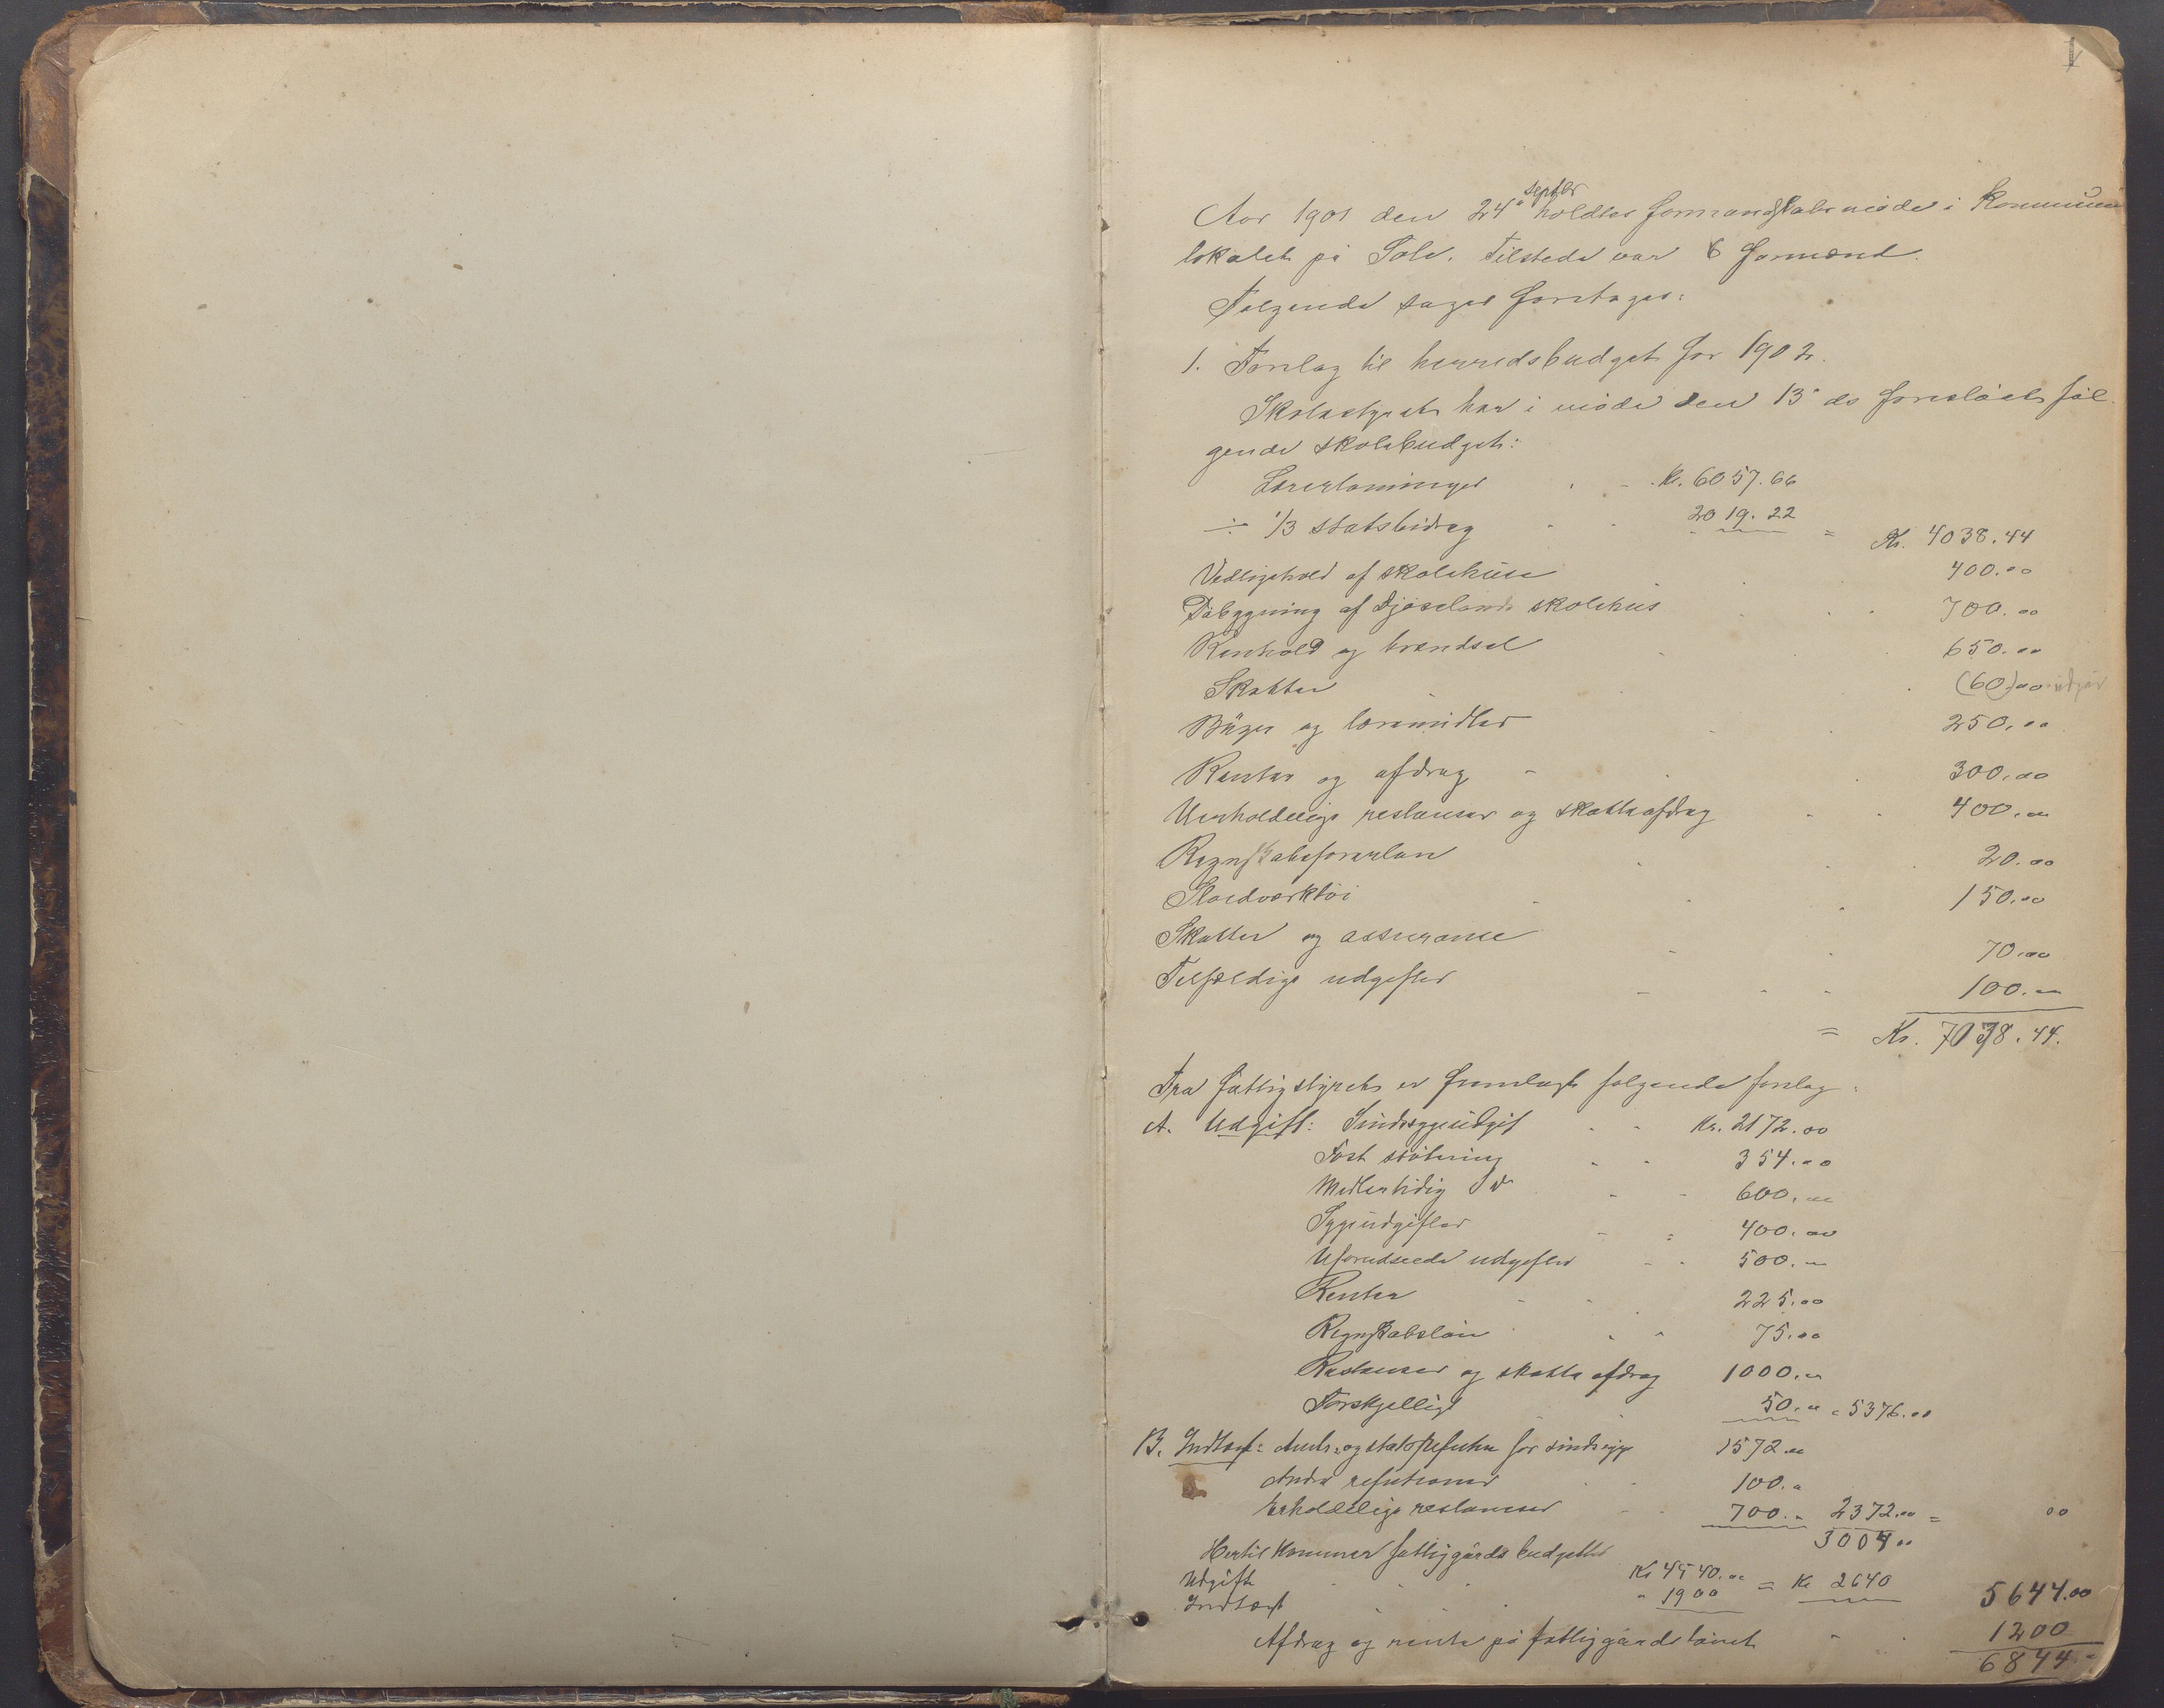 1
septbr
Aar 1901 den 24de holdtes formandskabsmøde i Kommune
lokalet på Sole. Tilstede var 6 formænd.
Følgende sager foretages:
1. Forslag til herredsbudget for 1902.
Skolestyret har i møde den 13de ds foreslået føl
gende skolebudget:
Lærerlønninger Kr. 6057.66
÷ 1/3 statsbidrag 2019.22 = Kr. 4038.44
Vedligehold af skolehuse 400.00
Påbygning af Djøselands skolehus 700.00
Renhold og brændsel 650.00
Skatter (60).00 udgår
Bøger og læremidler 250.00
Renter og afdrag 300.00
Uerholdelige restanser og skatteafdrag 400.00
Regnskabsførerløn 20.00
Sløidværktøi 150.00
Skatter og assurance 70.00
Tilfældige udgifter 100.00
= Kr. 7038.44.
Fra fattigstyret er fremlagt følgende forslag:
A. Udgift: Sindssygeudgift Kr. 2172.00
Fast støtning 354.00
Midlertidig do 600.00
Sygeudgifter 400.00
Uforudseede udgifter 500.00
Renter 225.00
Regnskabsløn 75.00
Restanser og skatteafdrag 1000.00
Forskjelligt 50.00 = 5376.00
B. Indtægt: Amts- og statsrefution for sindssyge 1572.00
Andre refutioner 100.00
Erholdelige restanser 700.00 2372.00 = 00
3004.00
Hertil kommer fattiggårds budgettet
Udgift Kr 4540.00
Indtægt " 1900 = Kr 2640 5644.00
Afdrag og rente på fattiggårdslånet 1200
6844.-